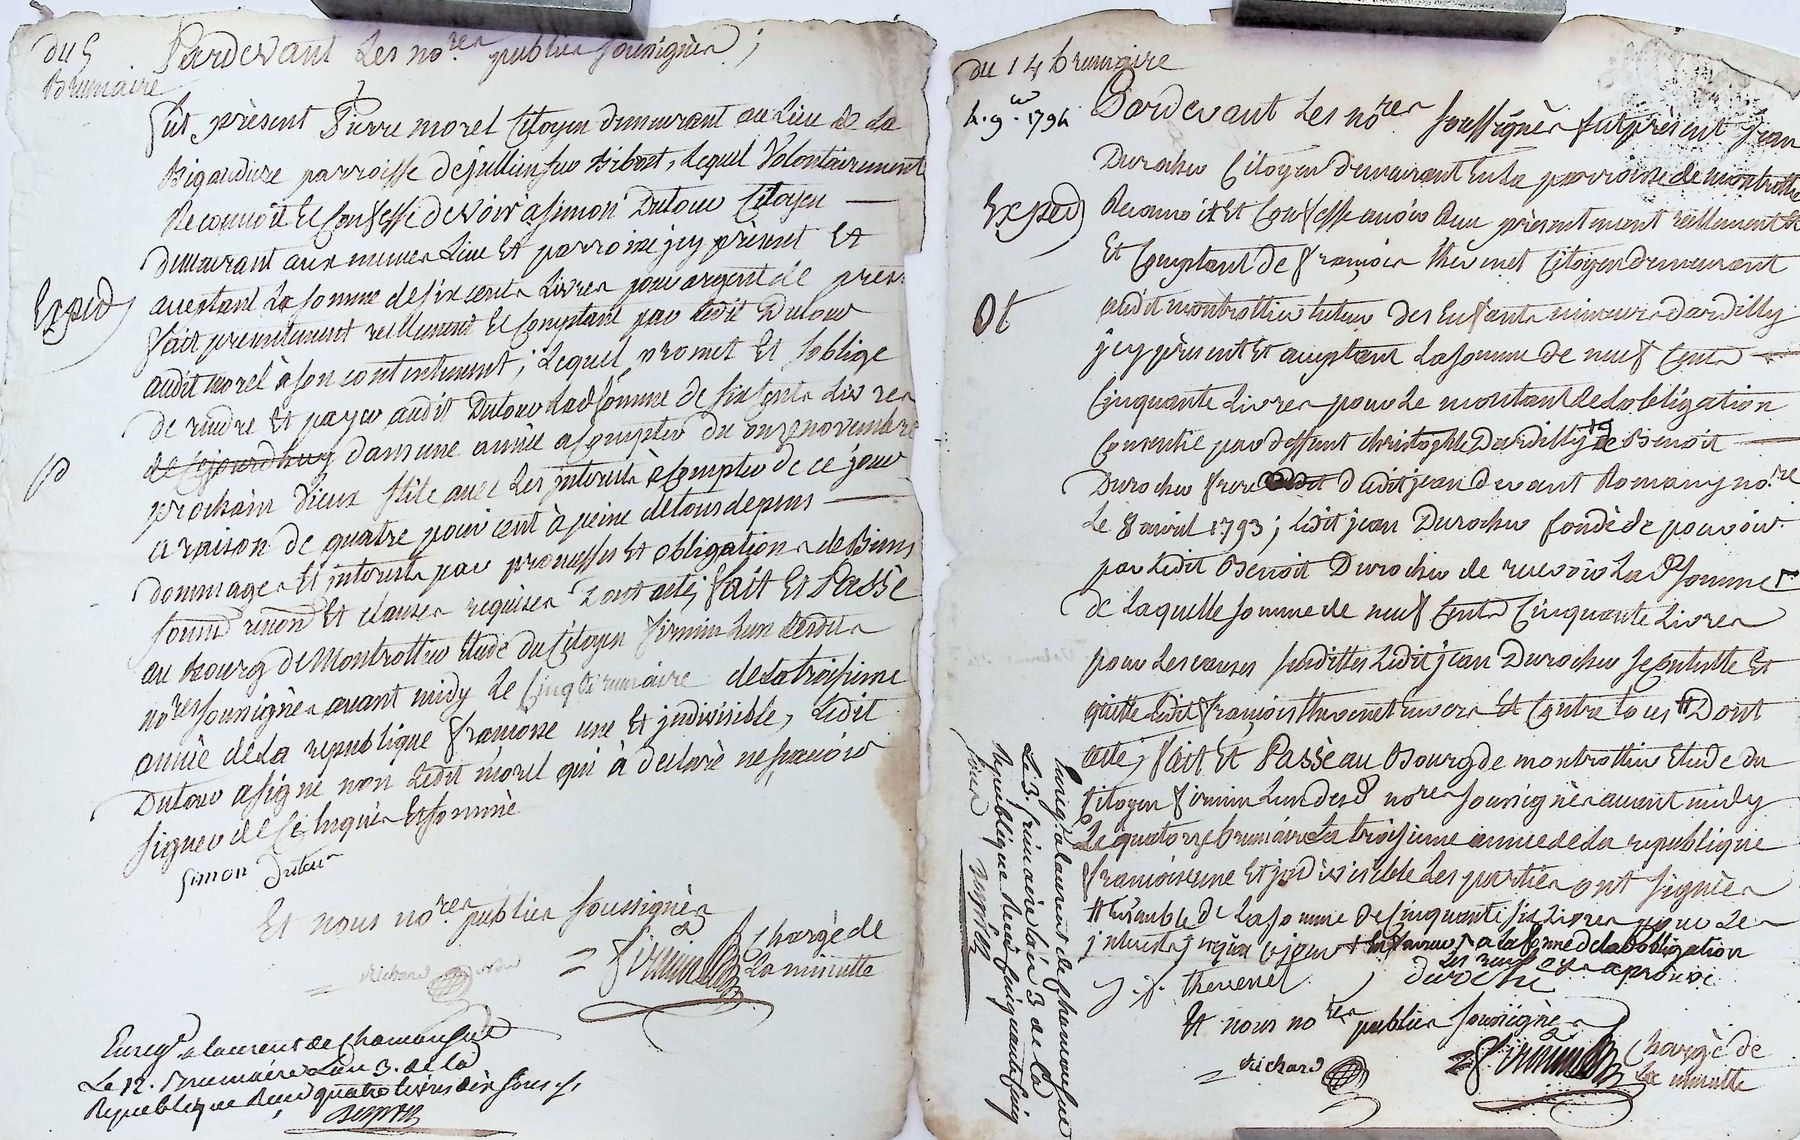 du 5
Brumaire
Pardevant Les no.res publics sousignés ;
fut present Pierre morel Citoyen demeurant au Lieu de La
Bigaudiere parroisse de jullien sur Bibost, lequel Volontairement
Reconnoit Et Confesse devoir a simon Dutour Citoyen
demeurant aux memes Lieu Et parroisse jcy présent Et
acceptant La somme de six cents Livres pour argent de prest
Exped
fait presentement reellement Et Comptant par ledit Dutour
audit morel à son contentement ; Lequel promet Et soblige
de rendre Et payer audit Dutour Lad. somme de six Cents Livres
dans une année a Compter du onze novembre
prochain vieux stile avec Les jnterests à Compter de ce jour
a raison de quatre pour cent à peine de tous depens
dommages Et jnterests par promesses Et obligations de Biens
soumis. renon. Et clauses requises Dont acte, fait Et Passé
au Bourg de Montrottier Etude du Citoyen firmin Lun desdits
no.res sousignés avant midy Le Cinq Brumaire de La troisieme
année de La republique francoise une Et jndivisible, Ledit
Dutour a signé non Ledit morel qui à declaré ne scavoir
signer de Ce Enquis Et sommé
simon Dutour
Et nous no.res publics soussignés
Richard
firmin
Chargé de
La minutte
Enreg.é a laurent de Chamousset
Le 12. Brumaire L'an 3. de la
Republique Reçu quatre livres dix sous
du 14 brumaire
4. 9.bre 1794
Pardevant Les no.res soussignés fut présent jean
Durocher Citoyen demeurant En La parroisse de montrottier
Exped
Reconnoit Et Confesse avoir Reçu présentement reellement
Et Comptant de françois thevenet Citoyen demeurant
audit montrottier tuteur Des Enfants mineurs dardilly
jcy présent Et acceptant La somme de neuf Cents
Cinquante Livres pour Le montant de Lobligation
Consentie par deffunt christophle Dardilly a Benoit
Durocher frere dudit jean devant Romany no.re
Le 8 avril 1793 ; Ledit jean Durocher fondé de pouvoir
par Ledit Benoit Durocher de recevoir La d. somme
de Laquelle somme de neuf Cents Cinquante Livres
pour Les causes susdittes Ledit jean Durocher se Contente Et
quitte Ledit françois thevenet Envers Et Contre tous # Dont
acte, fait Et Passé au Bourg de montrottier Etude du
Citoyen firmin Lun desd. no.res sousignés avant midy
Le quatorze brumaire La troisieme année de La republique
francoise une Et jndivisible Les parties ont signés
# Ensemble de La somme de Cinquante six Livres pour Les
jnterests jusqua Ce jour a la forme de la d. obligation
Les renvoys aprouvé
j. f. thevenet
duroché
Et nous no.res publics sousignés
Richard
firmin
Chargé de
La minutte
Enreg.é a laurent de Chamousset
Le 3. frimaire L'an 3 de la
Republique Reçu Cinquante Cinq
sous